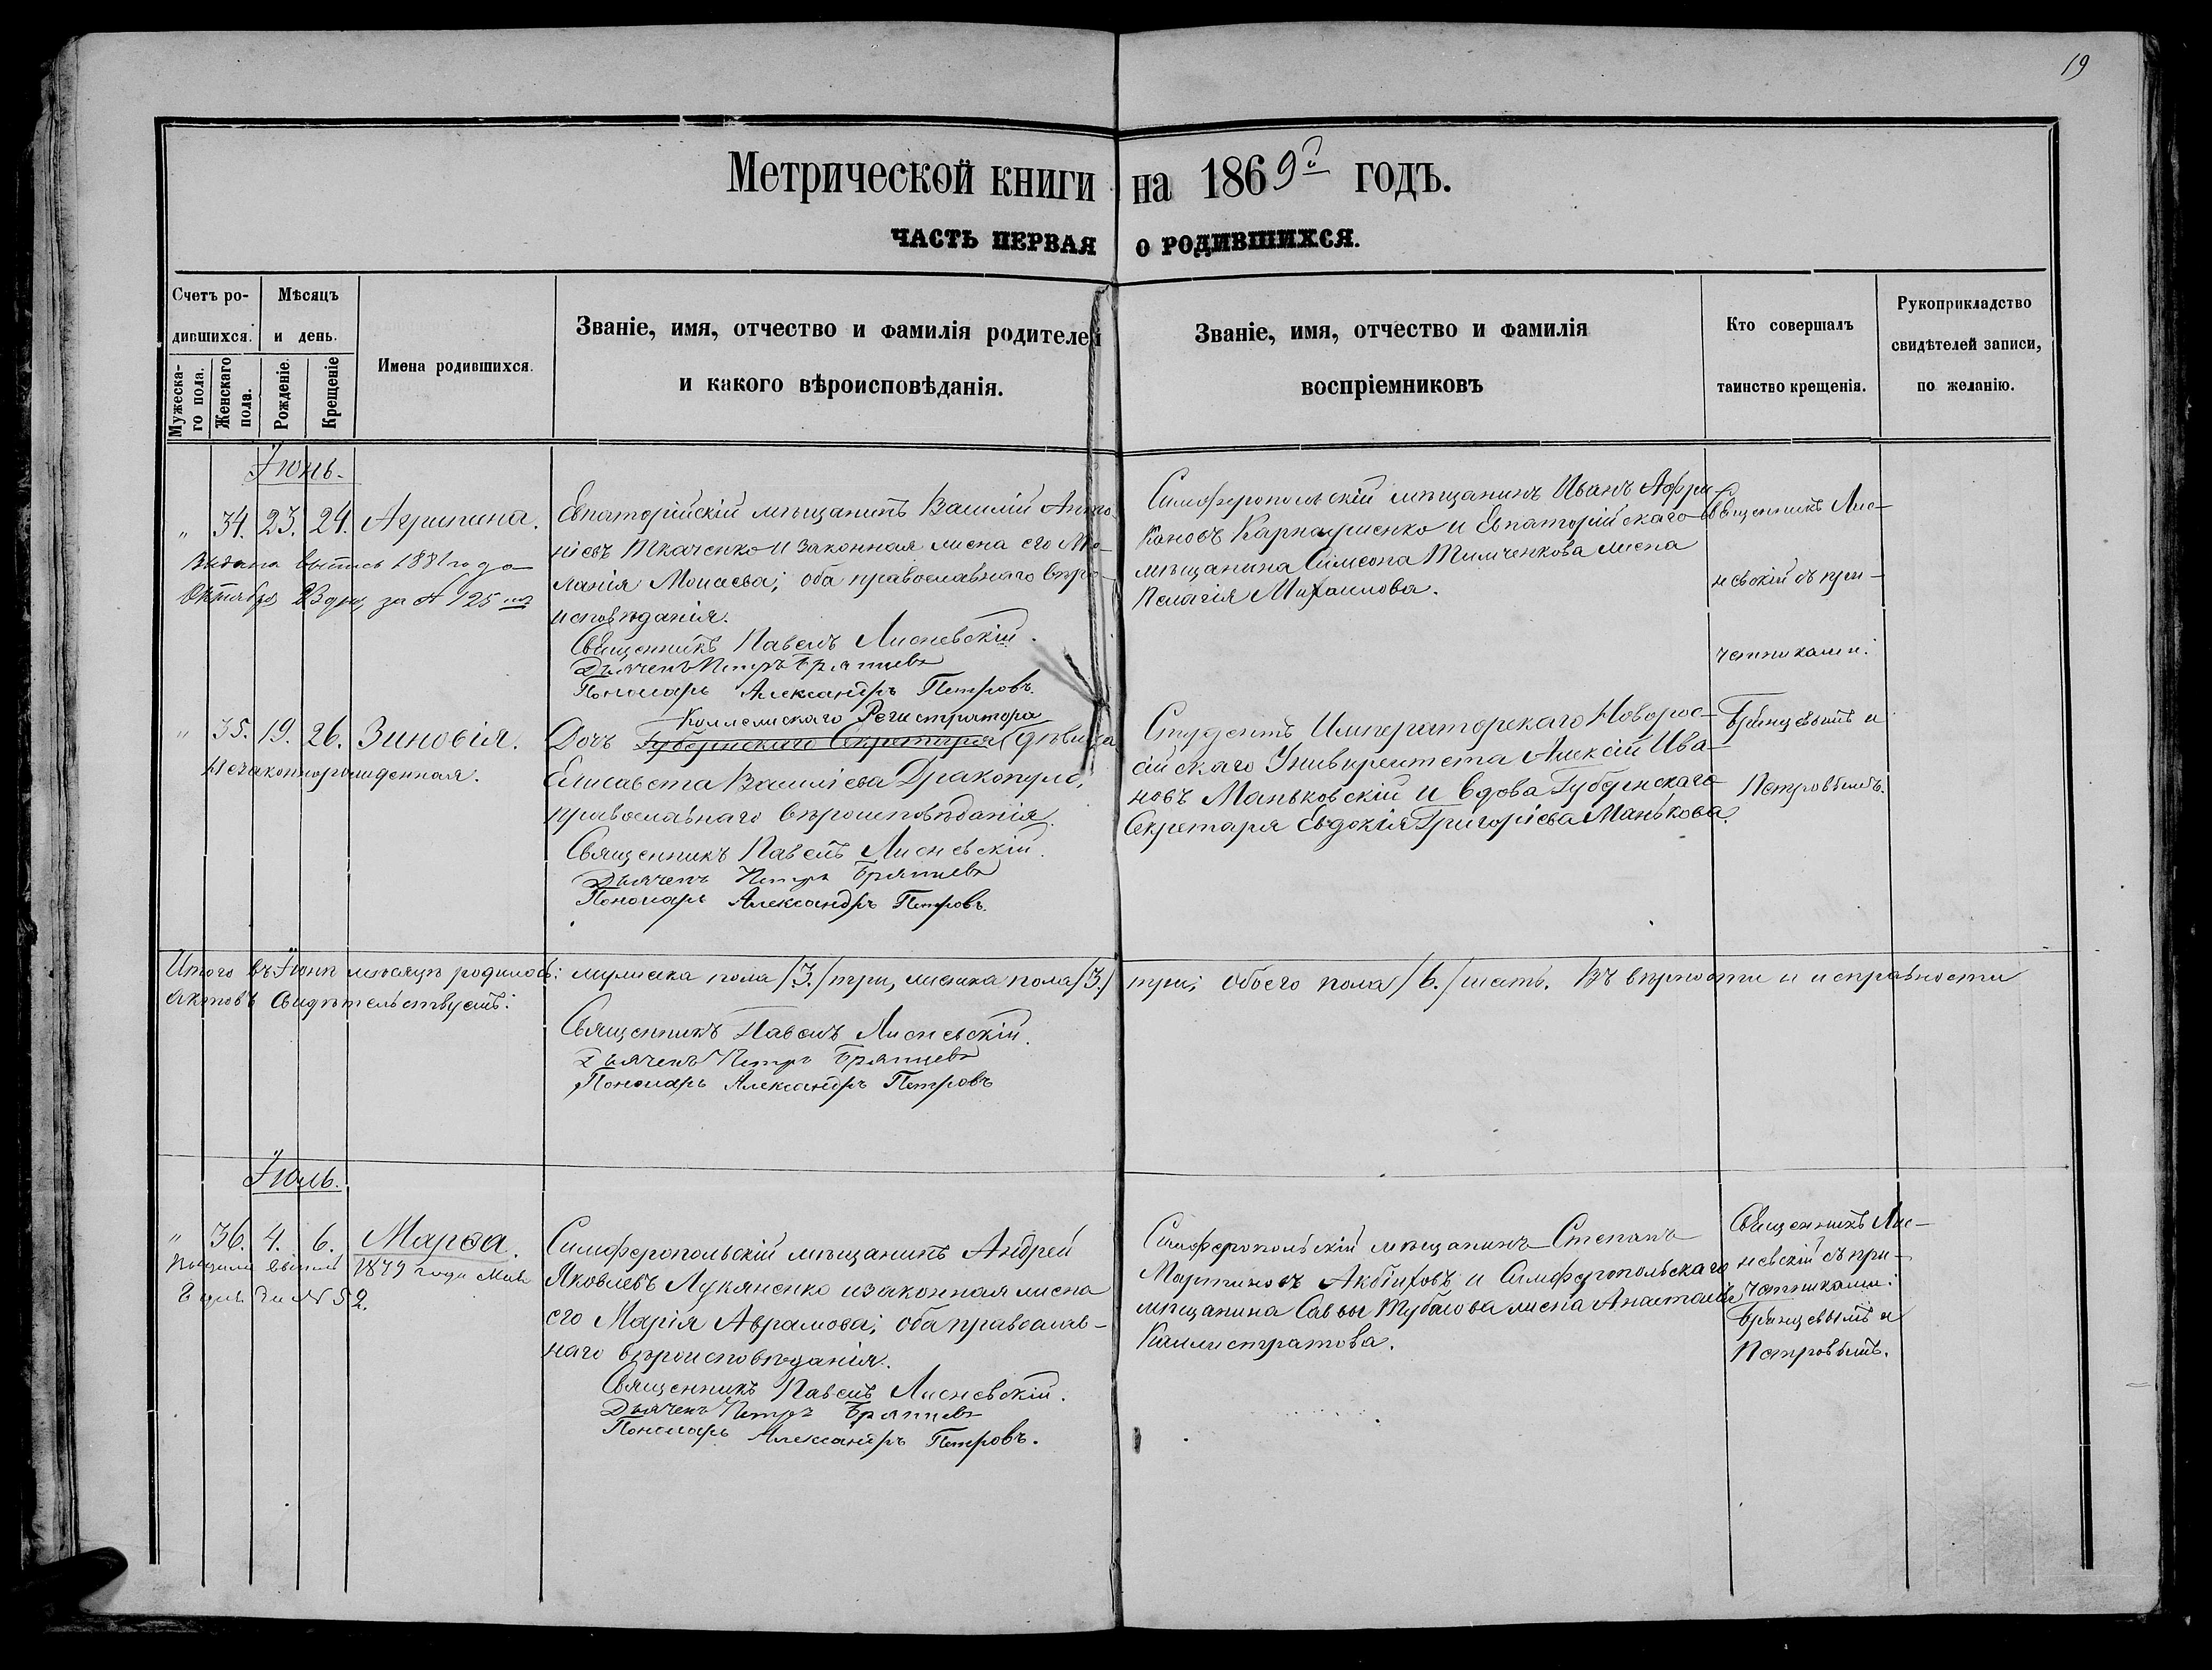 19
Метрической книги на 1869й годъ.
ЧАСТЬ ПЕРВАЯ О РОДИВШИХСЯ.
Счетъ ро-
дившихся.
Мужеска-
го пола.
Женскаго
пола.
Мѣсяцъ
и день.
Рожденіе.
Крещеніе
Имена родившихся.
Званіе, имя, отчество и фамилія родителей
и какого вѣроисповѣданія.
Званіе, имя, отчество и фамилія
воспріемниковъ
Кто совершалъ
таинство крещенія.
Рукоприкладство
свидѣтелей записи,
по желанію.
Іюнь.
" 34. 23. 24. Агрипина.
Выдана выпись 1881 года
Октября 23 дня за № 125
Евпаторійскій мѣщанинъ Василій Анто-
ніевъ Ткаченко и законная жена его Ме-
ланія Моисеева; оба православнаго вѣро-
исповѣданія.
Священникъ Павелъ Лисневскій.
Дьячекъ Петръ Брянцевъ
Пономарь Александръ Петровъ.
Симферопольскій мѣщанинъ Иванъ Афри-
кановъ Карнаушенко и Евпаторійскаго
мѣщанина Симеона Тимченкова жена
Пелагія Михаилова.
Священникъ Лис-
невскій съ при-
четниками:
" 35. 19. 26. Зиновія.
Незаконнорожденная.
Коллежскаго Регистратора
Дочь Губернскаго Секретаря (дѣвица
Елисавета Василіева Дракопуло,
православнаго вѣроисповѣданія.
Священникъ Павелъ Лисневскій.
Дьячекъ Петръ Брянцевъ
Пономарь Александръ Петровъ.
Студентъ Императорскаго Новорос-
сійскаго Университета Алексій Ива-
новъ Маньковскій и вдова Губернскаго
Секретаря Евдокія Григоріева Манькова.
Брянцевымъ и
Петровымъ.
Итого въ Іюнѣ мѣсяцѣ родилось: мужеска пола /3./ три, женска пола /3./ три; обоего пола /6./ шесть. Въ вѣрности и исправности
актовъ свидѣтельствуемъ:
Священникъ Павелъ Лисневскій.
Дьячекъ Петръ Брянцевъ
Пономарь Александръ Петровъ
Іюль.
" 36. 4. 6. Марѳа.
выпись 1879 года
8 дня за № 52.
Симферопольскій мѣщанинъ Андрей
Яковлевъ Лукяненко и законная жена
его Марія Аврамова; оба православ-
наго вѣроисповѣданія.
Священникъ Павелъ Лисневскій.
Дьячекъ Петръ Брянцевъ
Пономарь Александръ Петровъ.
Симферопольскій мѣщанинъ Степанъ
Мартиновъ и Симферопольскаго
мѣщанина Саввы жена Анастасія
Каллистратова.
Священникъ Лис-
невскій съ при-
четниками:
Брянцевымъ и
Петровымъ.